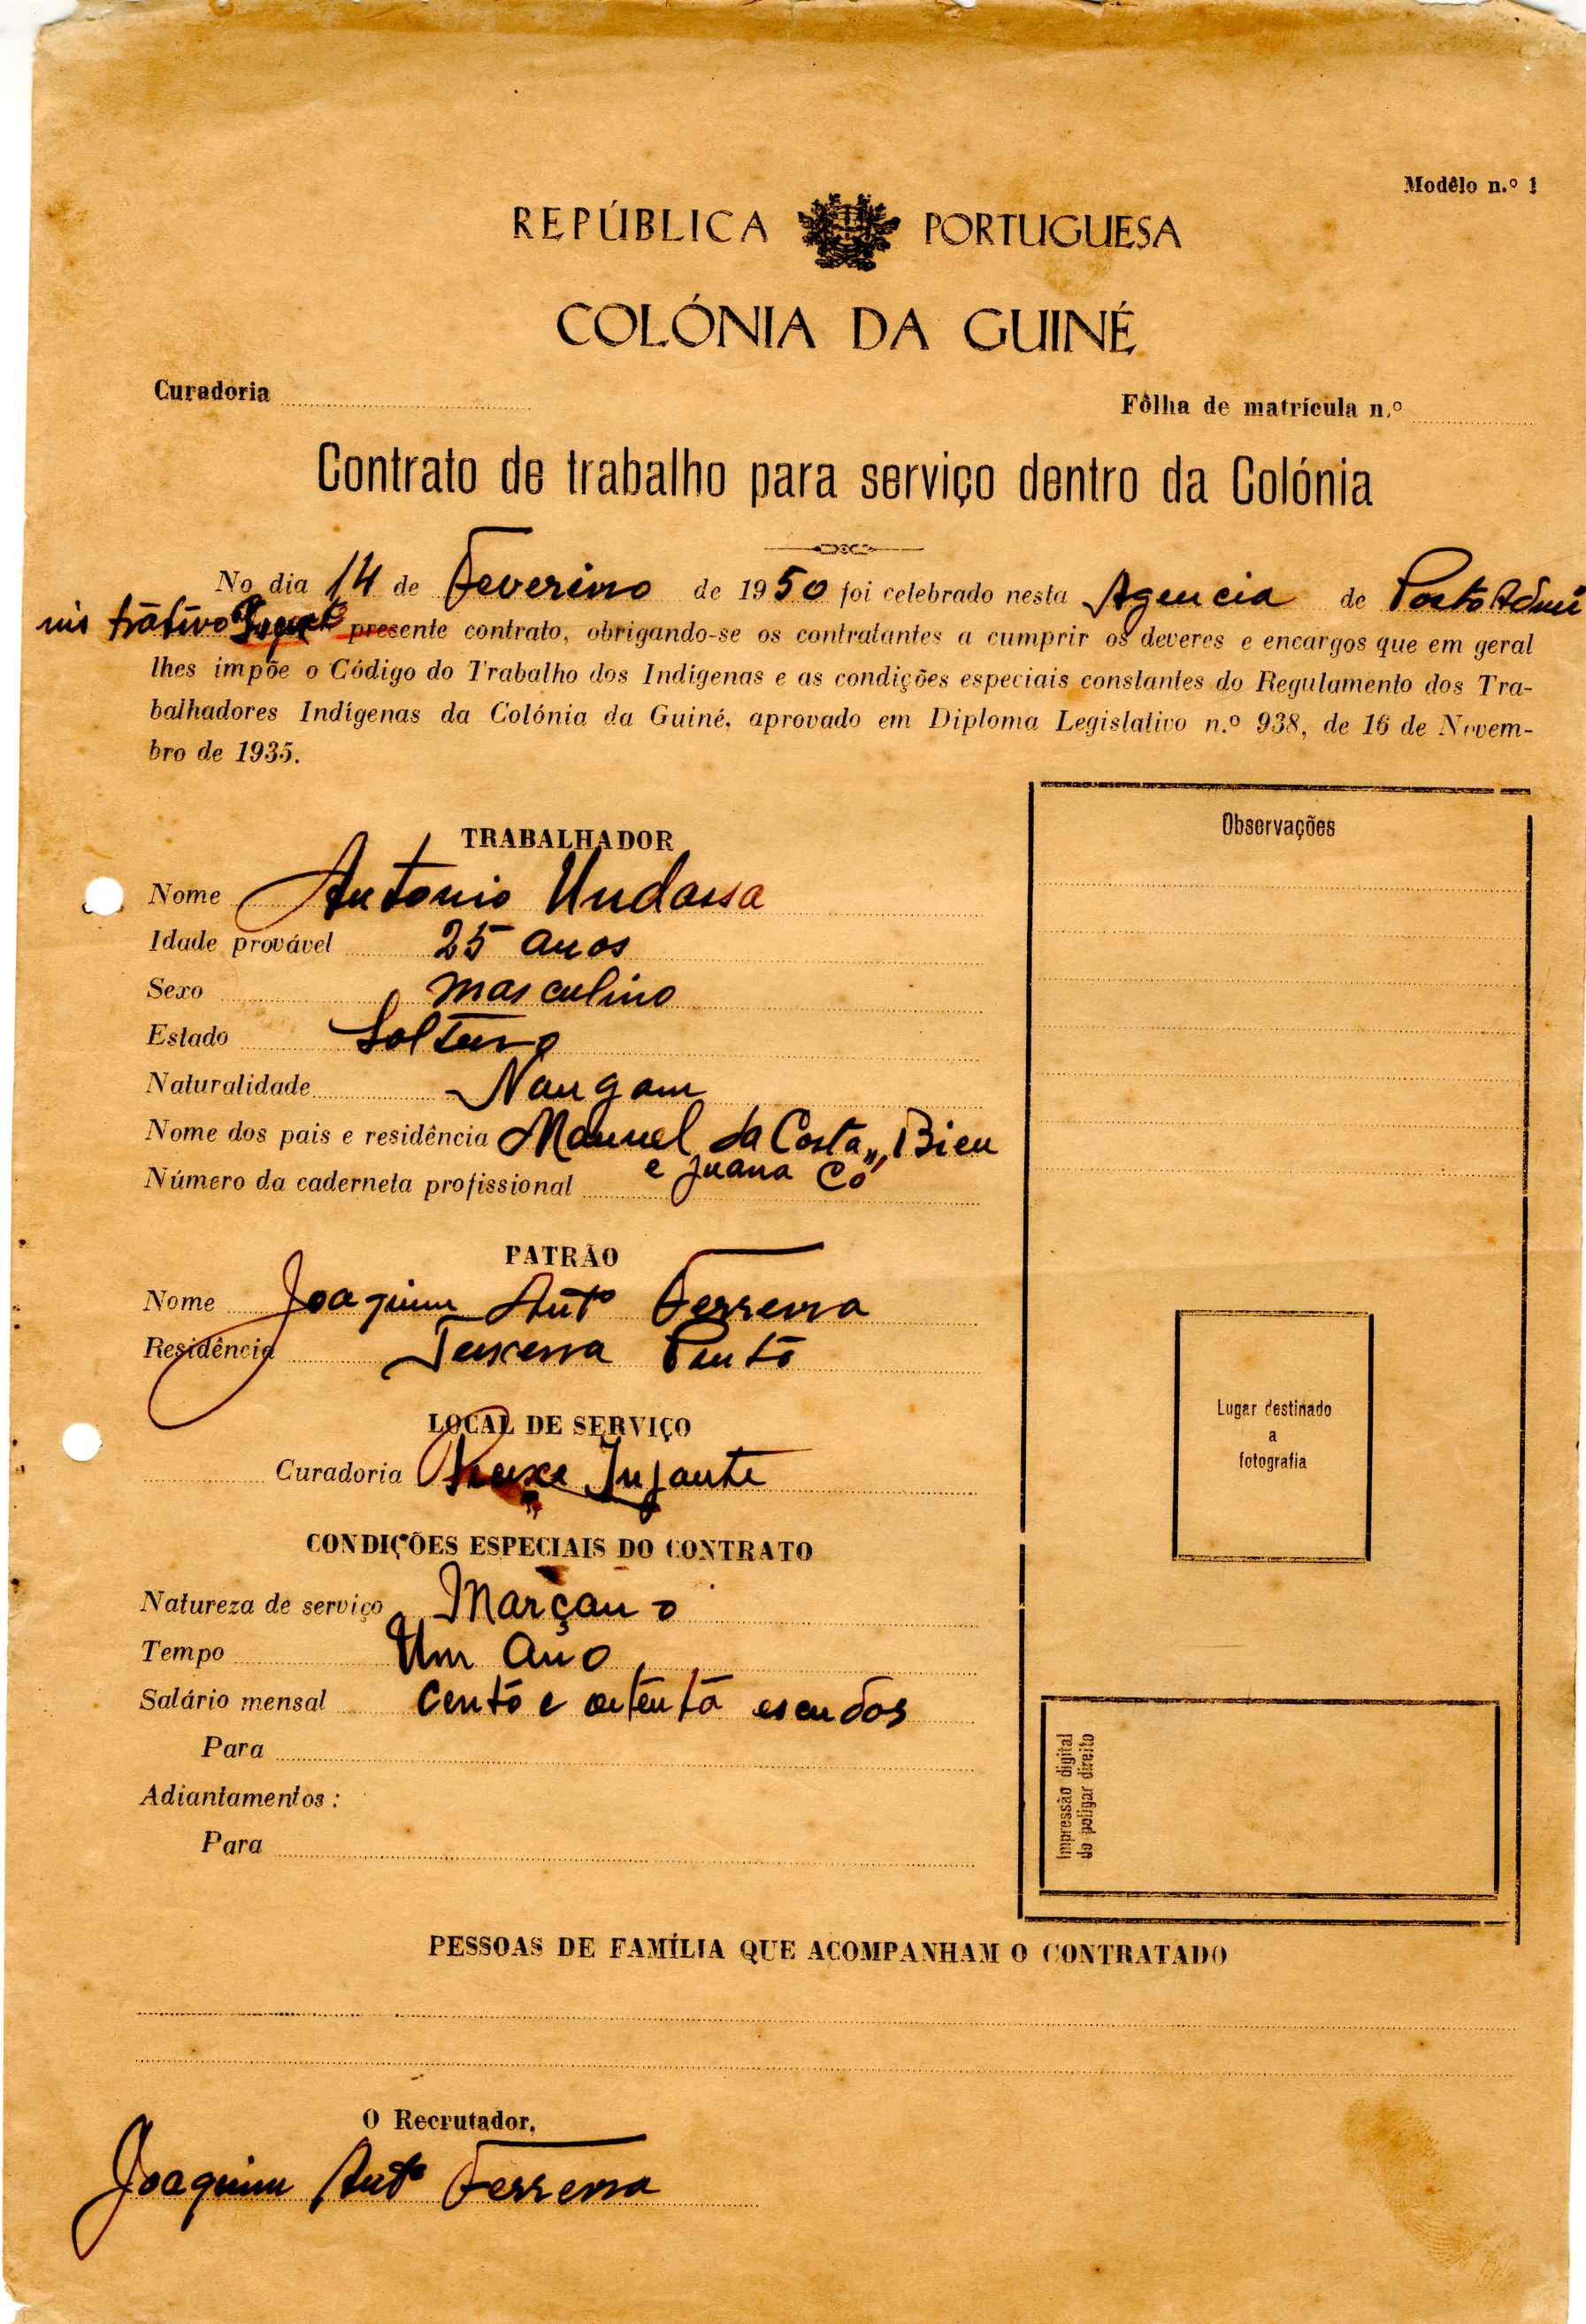 Modêlo n.º 1
REPÚBLICA PORTUGUESA
COLÓNIA DA GUINÉ
Curadoria
Fôlha de matrícula n.º
Contrato de trabalho para serviço dentro da Colónia
No dia 14 de Fevereiro de 1950 foi celebrado nesta Agencia de Posto Admi
nistrativo presente contrato, obrigando-se os contratantes a cumprir os deveres e encargos que em geral
lhes impõe o Código do Trabalho dos Indígenas e as condições especiais constantes do Regulamento dos Tra-
balhadores Indígenas da Colónia da Guiné, aprovado em Diploma Legislativo n.º 938, de 16 de Novem-
bro de 1935.
TRABALHADOR
Nome Antonio Undassa
Idade provável 25 anos
Sexo masculino
Estado Solteiro
Naturalidade Nangam
Nome dos pais e residência Manuel da Costa, Bieu
e Juana Có
Número da caderneta profissional
PATRÃO
Nome Joaquim Antº Ferreira
Residência Teixeira Pinto
LOCAL DE SERVIÇO
Curadoria Infante
CONDIÇÕES ESPECIAIS DO CONTRATO
Natureza de serviço Marçano
Tempo Um ano
Salário mensal Cento e oitenta escudos
Para
Adiantamentos :
Para
Observações
Lugar destinado
a
fotografia
Impressão digital
do poligar direito
PESSOAS DE FAMÍLIA QUE ACOMPANHAM O CONTRATADO
O Recrutador,
Joaquim Antº Ferreira